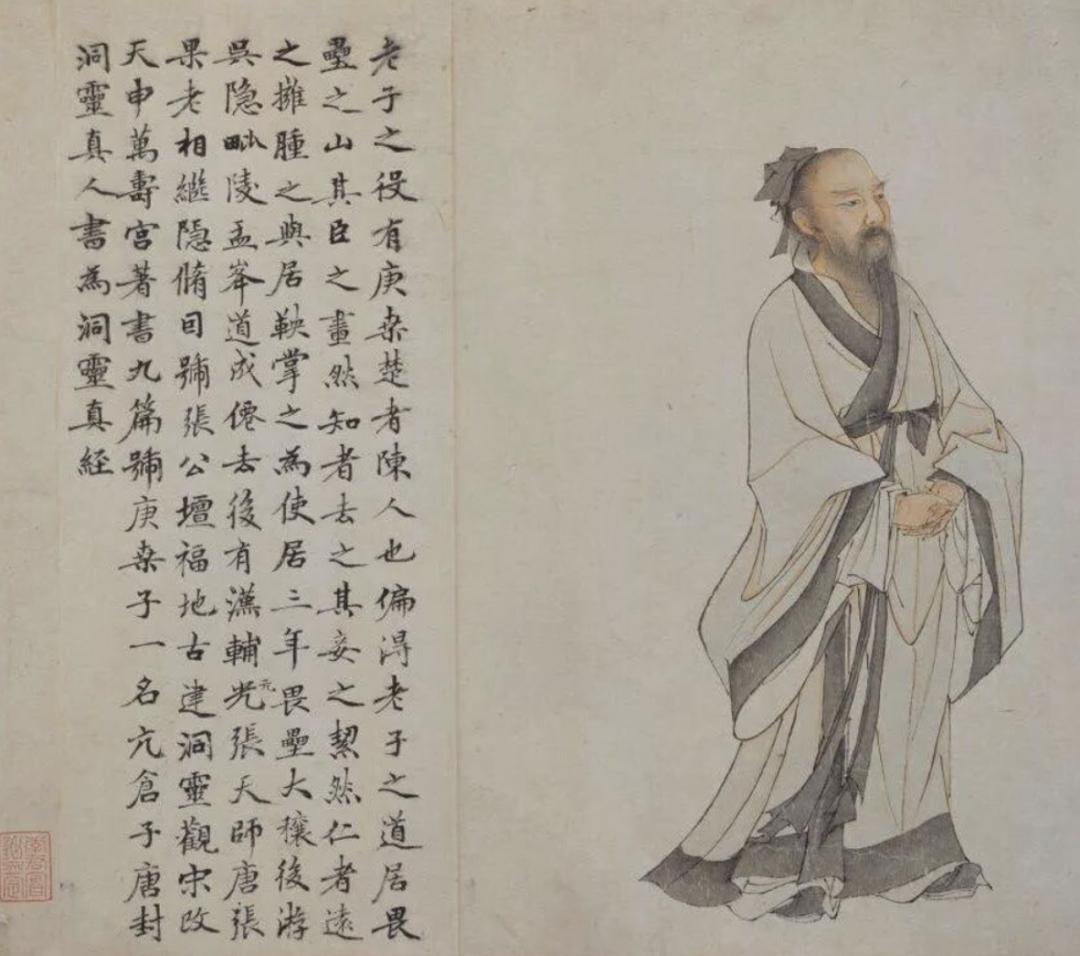 老子之役有庚桒楚者陳人也偏淂老子之道居畏
壘之山其臣之畫然知者去之其妾之絜然仁者遠
之擁腫之與居鞅掌之為使居三年畏壘大穰後游
吳隐毗陵孟峯道成僊去後有漢輔光元張天師唐張
果老相繼隱脩因號張公壇福地古建洞靈觀宋改
天申萬壽宮著書九篇號庚桒子一名亢倉子唐封
洞靈真人書為洞靈真経